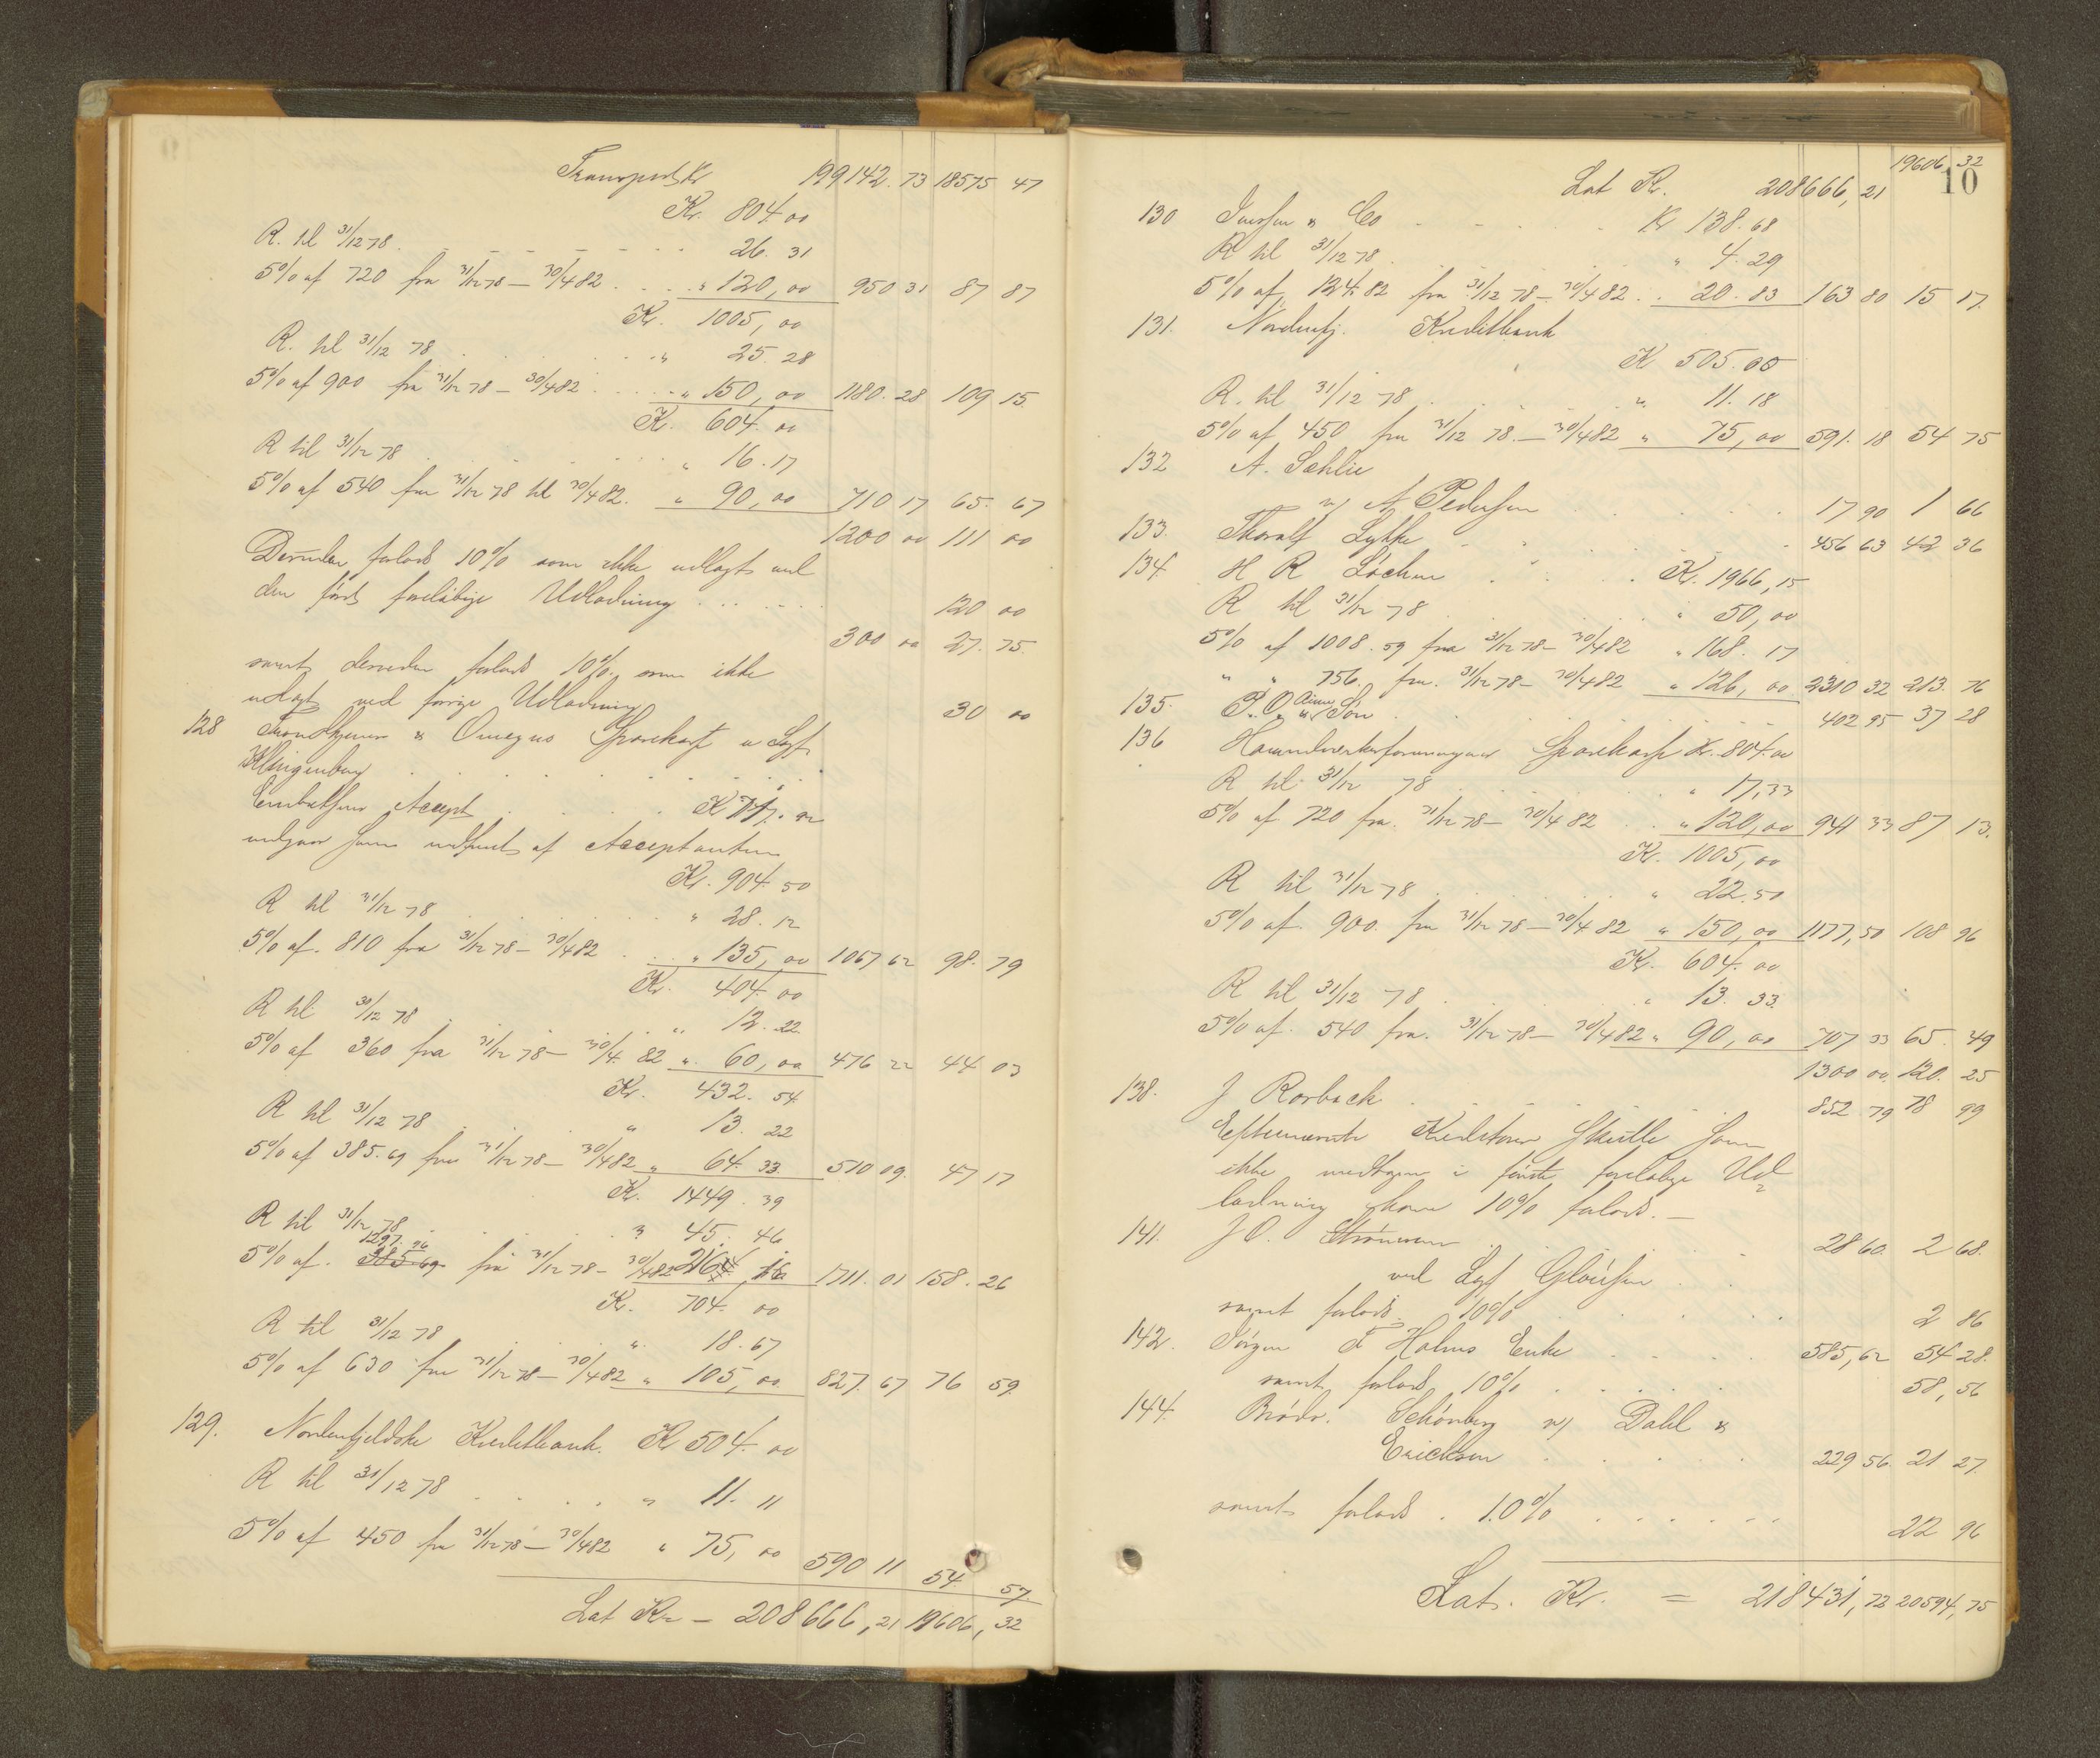 Transport Kr 199142.73 18575 47
Kr. 804.00
R. til 31/12 78 26.31
5% af 720 fra 31/12 78 – 30/4 82 " 120,00 950 31 87 87
Kr. 1005,00
R. til 31/12 78 " 25.28
5% af 900 fra 31/12 78 – 30/4 82 " 150,00 1180.28 109 15
Kr. 604.00
R til 31/12 78 " 16.17
5% af 540 fra 31/12 78 til 30/4 82. " 90,00 710 17 65.67
1200 00 111 00
Desuden forlods 10% som ikke udlagt ved
den første foreløbige Udlodning 120 00
300 00 27.75
samt desuden forlods 10% som ikke
udlagt ved forrige Udlodning 30 00
128 Trondhjems & Omegns Sparekasse v Sagf.
Klingenberg
Accept Kr
udgaar som indfriet af Acceptanten
Kr. 904.50
R til 31/12 78 " 28.12
5% af. 810 fra 31/12 78 – 30/4 82 " 135,00 1067 62 98.79
Kr. 404.00
R til 31/12 78 " 12.22
5% af 360 fra 31/12 78 – 30/4 82 " 60,00 476 22 44 03
Kr. 432.54
R til 31/12 78 " 13.22
5% af 385.69 fra 31/12 78 – 30/4 82 " 64.33 510 09. 47 17
Kr. 1449.39
R til 31/12 78 " 45.46
1297.96
5% af. 385 69 fra 31/12 78 – 30/4 82 216 16 1711.01 158.26
Kr. 704.00
R til 31/12 78 " 18.67
5% af 630 fra 31/12 78 – 30/4 82 " 105,00 827.67 76 59
129. Nordenfjeldske Kreditbank. Kr 504.00
R til 31/12 78 " 11.11
5% af 450 fra 31/12 78 – 30/4 82 " 75,00 590 11 54 57.
Lat Kr – 208666,21 19606,32
19606 32
10
Lat Kr. 208666,21
130 & Co Kr 138.68
R til 31/12 78 " 4.29
5% af 124.82 fra 31/12 78 – 30/4 82 20.83 163 80 15 17.
131. Nordenfj. Kreditbank
Kr 505.00
R. til 31/12 78 " 11.18
5% af 450 fra 31/12 78. – 30/4 82 " 75,00 591.18 54 75
132 A. Sehlie
v/ A Pedersen 17 90 1 66
133. Thoralf Lykke 456 63 42 36
134. H R Løchen Kr. 1966,15
R til 31/12 78 " 50,00
5% af 1008.59 fra 31/12 78 – 30/4 82 " 168.17
" " 756. fra. 31/12 78 – 30/4 82 " 126,00 2310 32 213.76
135. P. O. Aune & Søn 402 95 37 28
136 Haandværkerforeningens Sparekasse Kr. 804.00
R til 31/12 78 " 17,33
5% af 720 fra. 31/12 78 – 30/4 82 " 120,00 941 33 87 13.
Kr. 1005,00
R til 31/12 78 " 22.50
5% af. 900. fra 31/12 78 – 30/4 82 " 150,00 1177,50 108 96
Kr. 604.00
R til 31/12 78 " 13.33
5% af. 540 fra. 31/12 78 – 30/4 82 " 90,00 707 33 65.49
1300 00. 120.25
138. J Rorback 852 79 78 99
Efternævnte Kreditorer skulle som
ikke medtagne i første foreløbige Ud=
lodning have 10% forlods. –
141. J O. Strömmen 28 60. 2 68.
ved Sagf
samt forlods 10% 2 86
142. Jörgen F Holms Enke 585,62 54 28.
samt forlods 10% 58,56
144. Brødr. Schönberg v/ Dahl &
Ericksen 229 56. 21 27.
samt forlods. 10% 22 96
Lat. Kr. = 218431,72 20594,75